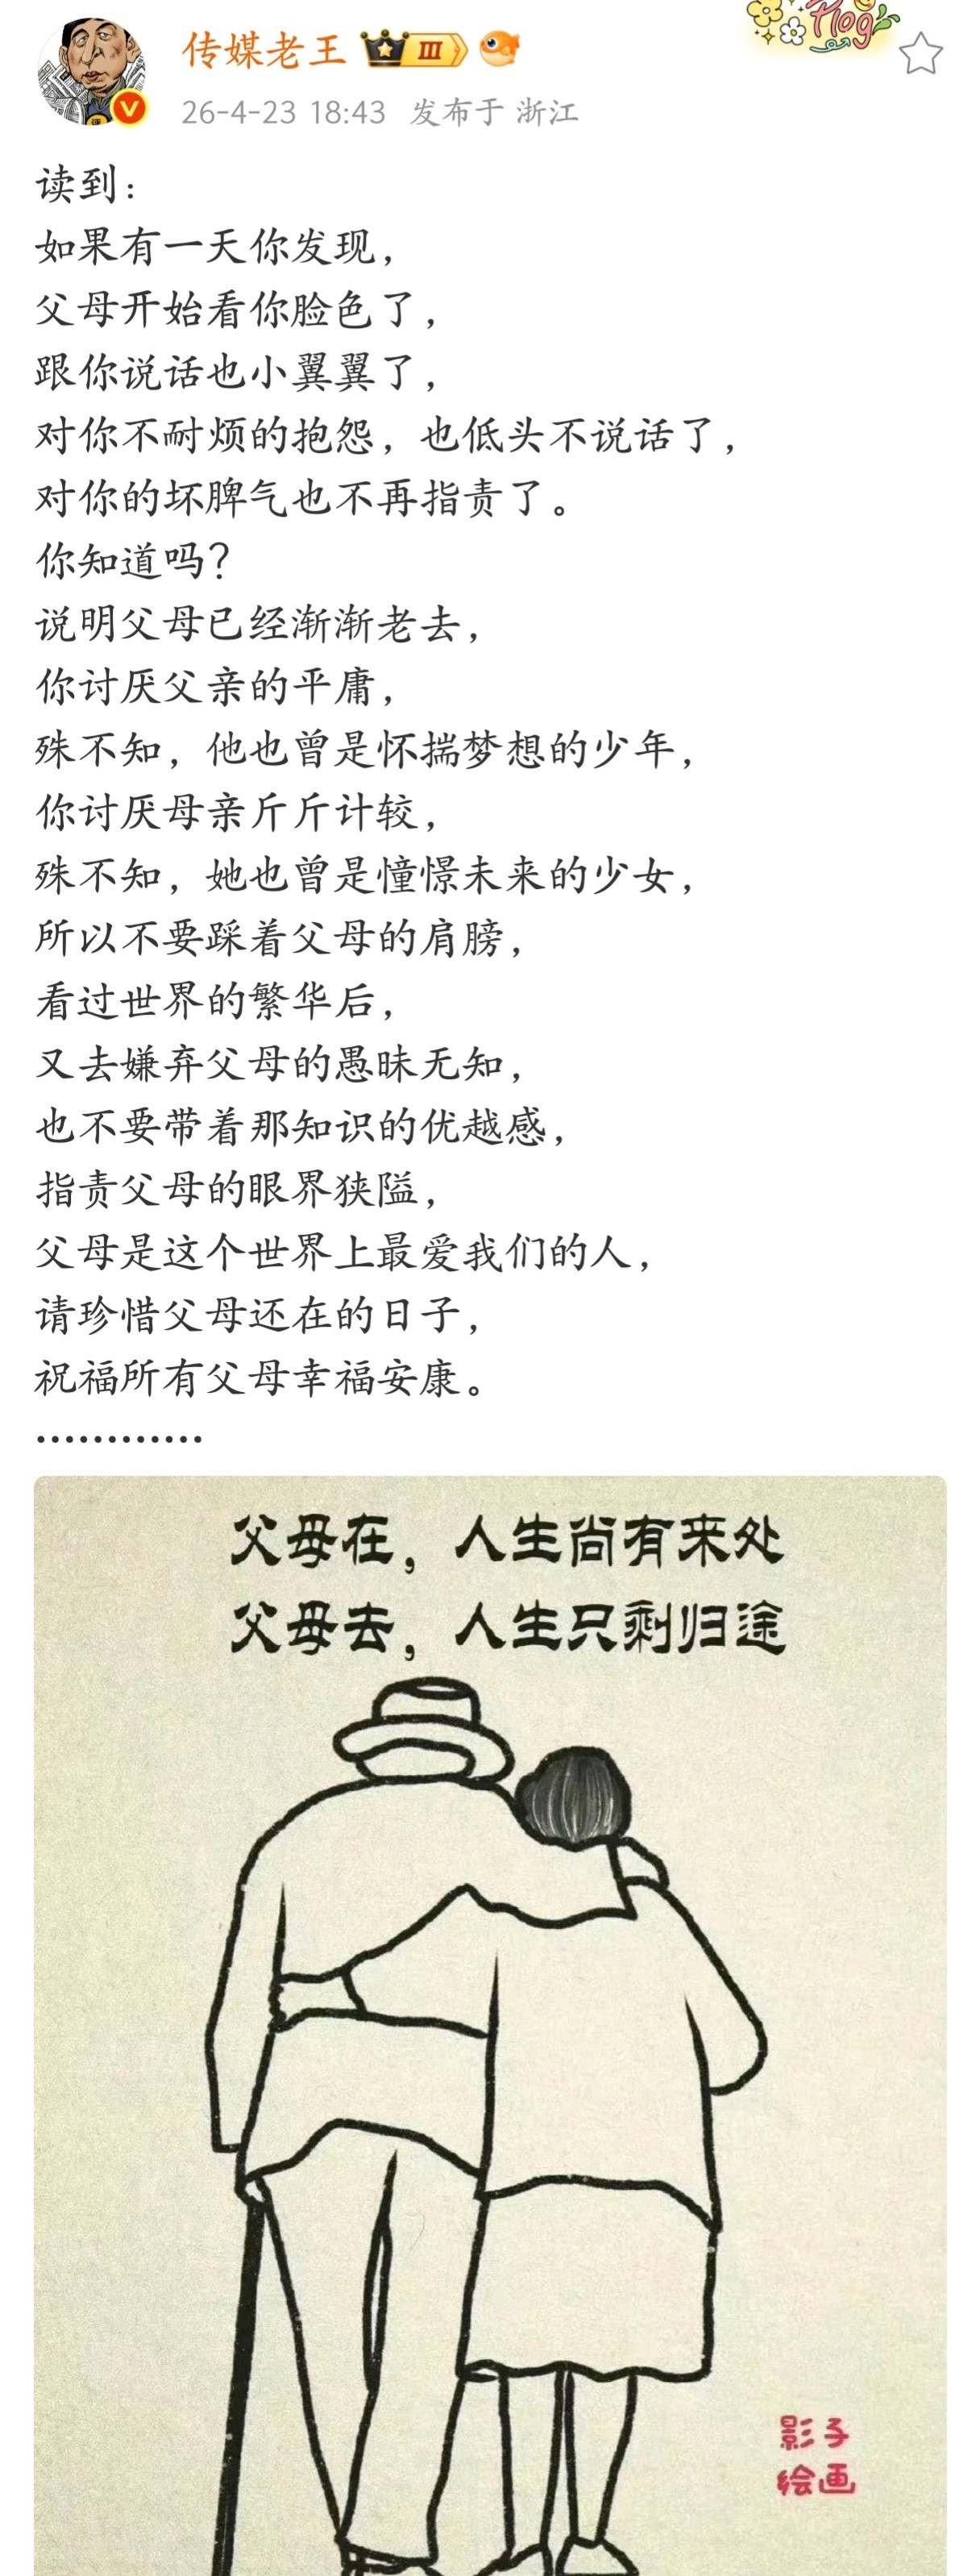 Plog
传媒老王 III
26-4-23 18:43 发布于 浙江
读到：
如果有一天你发现，
父母开始看你脸色了，
跟你说话也小翼翼了，
对你不耐烦的抱怨，也低头不说话了，
对你的坏脾气也不再指责了。
你知道吗？
说明父母已经渐渐老去，
你讨厌父亲的平庸，
殊不知，他也曾是怀揣梦想的少年，
你讨厌母亲斤斤计较，
殊不知，她也曾是憧憬未来的少女，
所以不要踩着父母的肩膀，
看过世界的繁华后，
又去嫌弃父母的愚昧无知，
也不要带着那知识的优越感，
指责父母的眼界狭隘，
父母是这个世界上最爱我们的人，
请珍惜父母还在的日子，
祝福所有父母幸福安康。
…………
父母在，人生尚有来处
父母去，人生只剩归途
影子
绘画